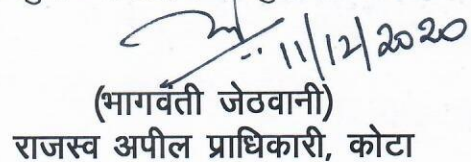 11/12/2020
(भागवंती जेठवानी)
राजस्व अपील प्राधिकारी, कोटा